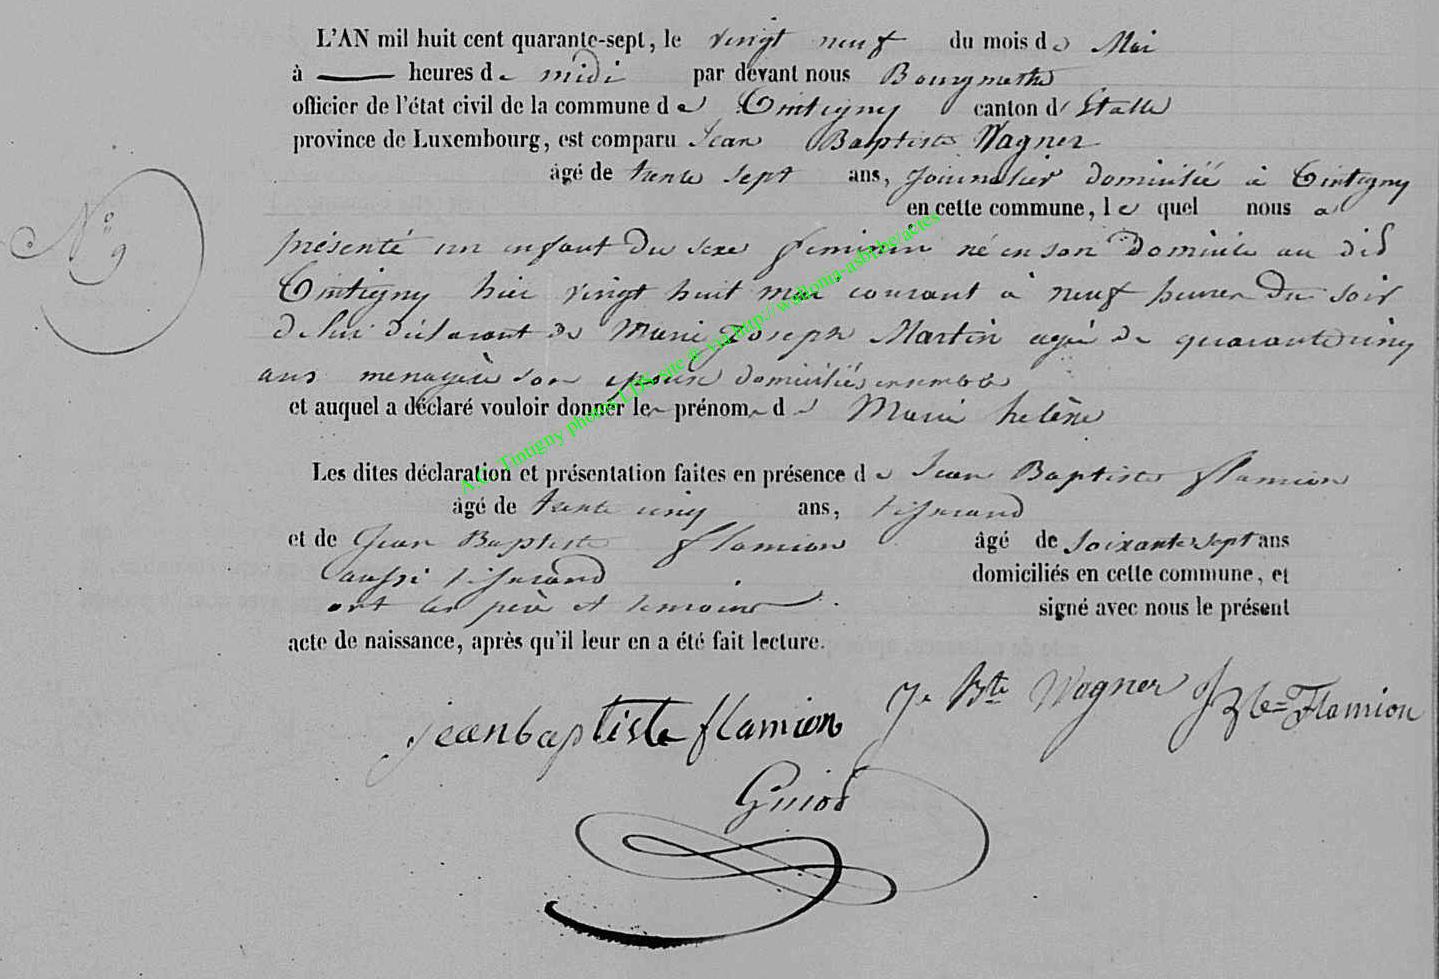 L'AN mil huit cent quarante-sept, le vingt neuf du mois de Mai
à —— heures de midi par devant nous Bourgmestre
officier de l'état civil de la commune de Tintigny canton d'Etalle
province de Luxembourg, est comparu Jean Baptiste Wagner
âgé de trente sept ans, journalier domicilié à Tintigny
en cette commune, le quel nous a
N° 9
présenté un enfant du sexe feminin né en son domicile au dit
Tintigny hier vingt huit mai courant à neuf heures du soir
de lui déclarant de Marie Joseph Martin agée de quarante cinq
ans menagère son epouse domiciliés ensemble
et auquel a déclaré vouloir donner le prénom de Marie helène
Les dites déclaration et présentation faites en présence de Jean Baptiste flamion
âgé de trente cinq ans, tisserand
et de Jean Baptiste flamion âgé de soixante sept ans
aussi tisserand domiciliés en cette commune, et
ont les père et temoins signé avec nous le présent
acte de naissance, après qu'il leur en a été fait lecture.
jean baptiste flamion J. Bte Wagner J Bte Flamion
Guiod
A.C. Tintigny photos LDS sne © via http://wallonia-asbl.be/actes